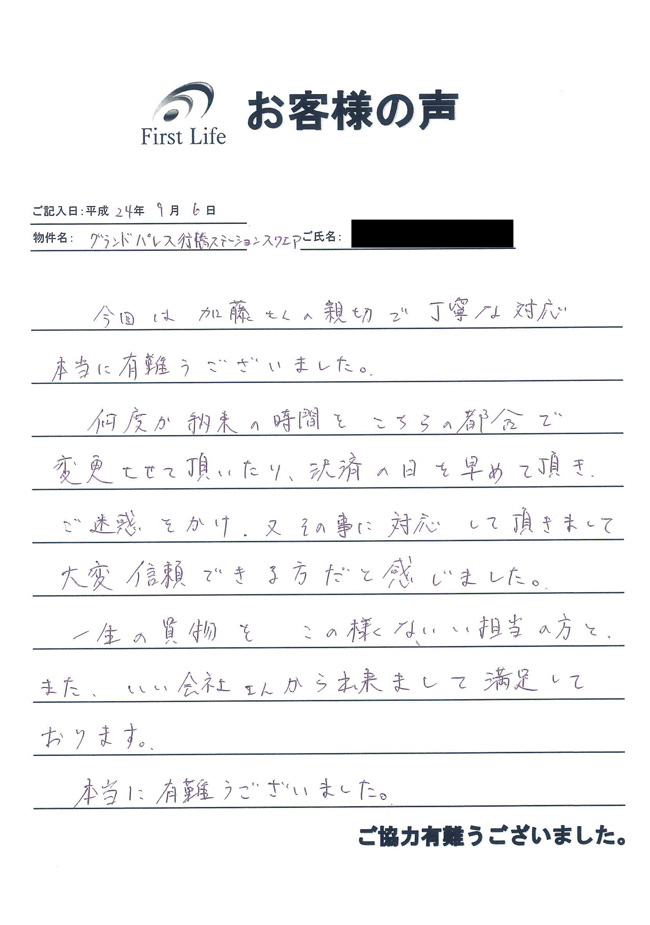 First Life
お客様の声
ご記入日:平成 24年 9月 6日
物件名: グランドパレス行橋ステーションスクエア ご氏名:
今回は 加藤さんの親切で 丁寧な 対応
本当に有難うございました。
何度か 約束の時間を こちらの都合で
変更させて頂いたり、決済の日を早めて頂き、
ご迷惑をかけ、又その事に対応して頂きまして
大変信頼できる方だと感じました。
一生の買物を この様な、いい担当の方と、
また、いい会社さんから出来まして満足して
おります。
本当に有難うございました。
ご協力有難うございました。